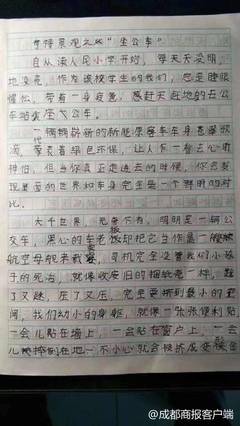 奇特景观之“坐公车”
自从该人民小学开始，每天天蒙明，
地没亮，作为该校学生的我们，总是睡眼
惺忪，带着一身疲惫，急赶天赶地的去公
车站坐公车。
一辆辆崭新的新能源客车车身
流，带着绿色环保，让人有一种去心旷
神怡，但当你真正走进去的时候，你会发
现里面的世界和车身完全是一个鲜明的对
比。
大千世界，无奇不有，明明是一辆公
交车，黑心的车老板却把它当作是一艘
航空母舰来载客，司机完全没管我们小孩
子的死活，就像收废旧的捆纸壳一样，踩
了又踩，压了又压，完全要挤到最小的空
间，我们幼小的身躯，就像一张张便利贴
一会儿贴在墙上，一会贴在窗户上，一会
儿挤倒在地一不小心就会被挤成变
@成都商报客户端